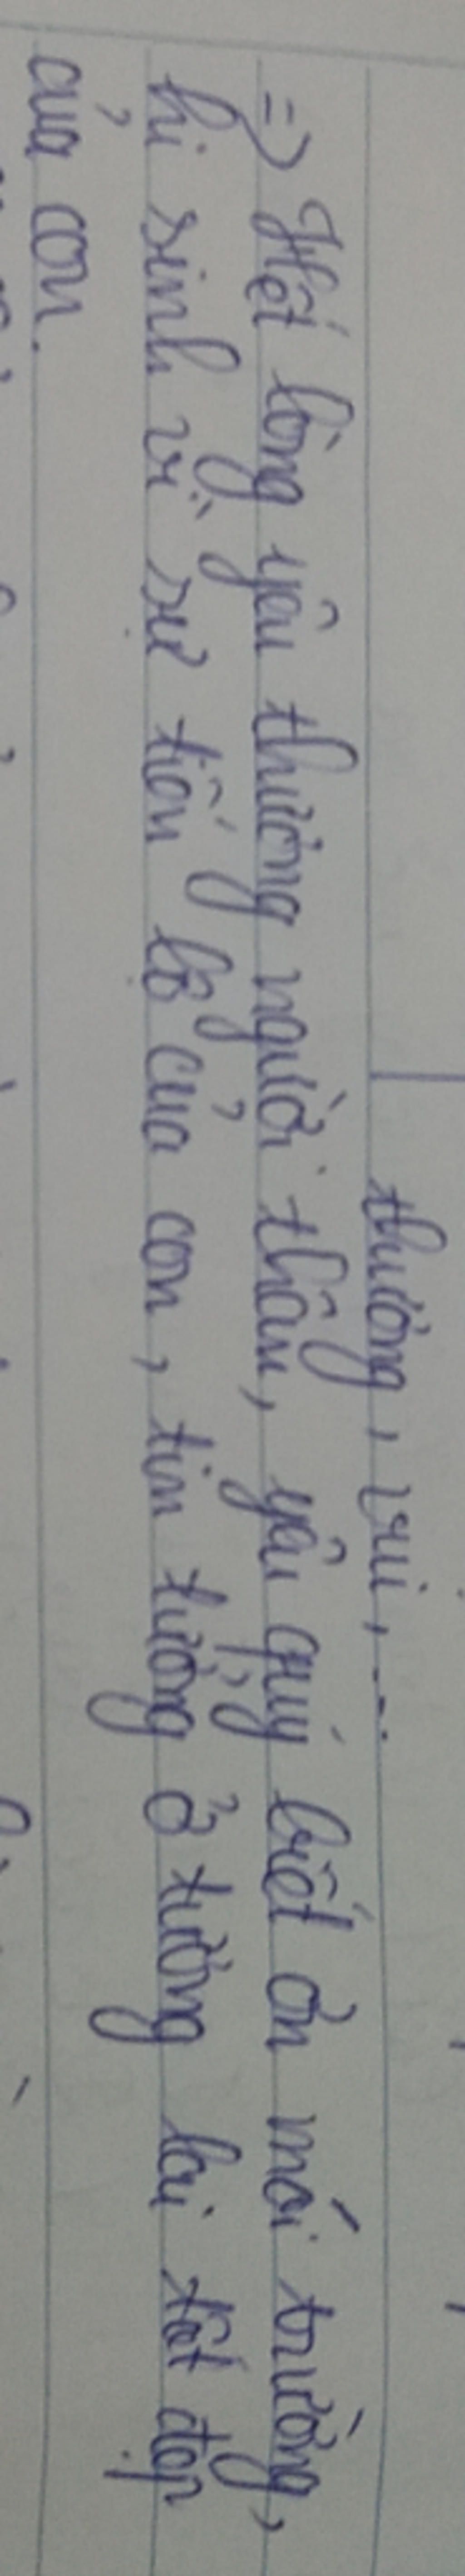 thương, vui,...
=> Hết lòng yêu thương người thân, yêu quý biết ơn mái trường,
hi sinh vì sự tiến bộ của con, tin tưởng ở tương lai tốt đẹp
của con.